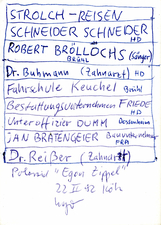 STROLCH-REISEN
SCHNEIDER SCHNEIDER
HD
ROBERT BRÖLLOCHS (Sänger)
BRÜHL
Dr. Buhmann (Zahnarzt) HD
Fahrschule Keuchel Brühl HD
Bestattungsunternehmen FRIEDE HD
Unteroffizier DUMM Dossenheim
JAN BRATENGEIER Bauunternehmer FRA
Dr. Reißer (Zahnarzt)
"Egon Eppel"
22 II 82 Köln